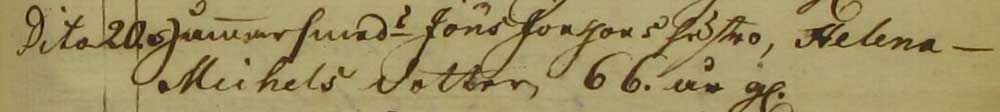 Dito 20. Hammarsmeds Jöns Jonsons hustro, Helena
Michels Dotter, 66. år gl.